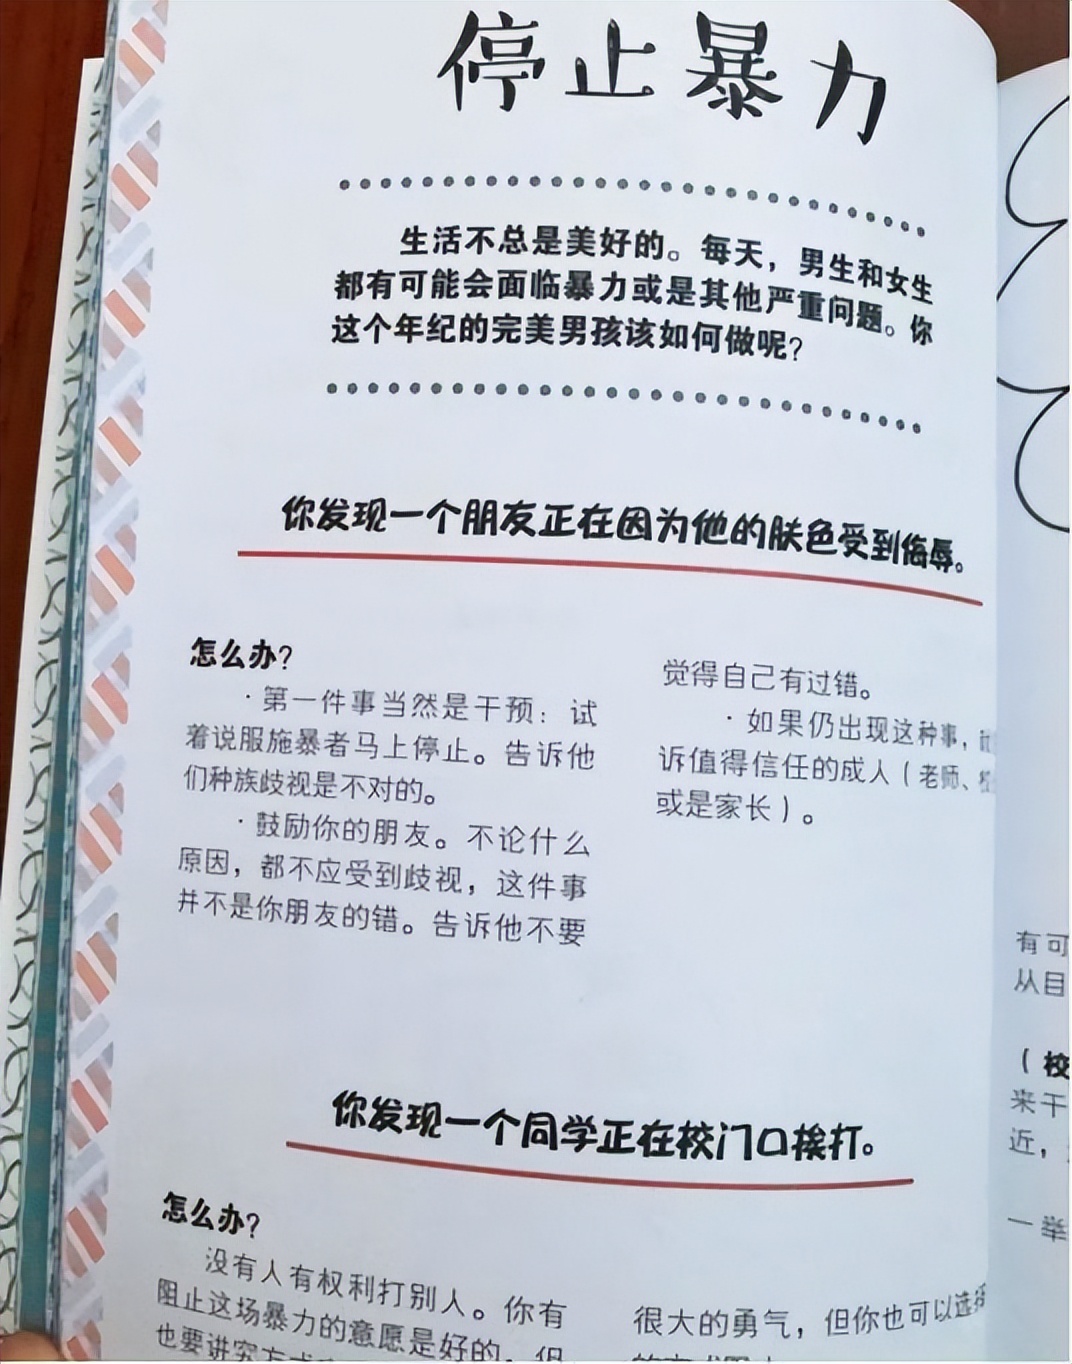 停止暴力
生活不总是美好的。每天，男生和女生
都有可能会面临暴力或是其他严重问题。你
这个年纪的完美男孩该如何做呢？
你发现一个朋友正在因为他的肤色受到侮辱。
怎么办？
·第一件事当然是干预：试
着说服施暴者马上停止。告诉他
们种族歧视是不对的。
·鼓励你的朋友。不论什么
原因，都不应受到歧视，这件事
并不是你朋友的错。告诉他不要
觉得自己有过错。
·如果仍出现这种事，
诉值得信任的成人（老师、校
或是家长）。
你发现一个同学正在校门口挨打。
怎么办？
没有人有权利打别人。你有
阻止这场暴力的意愿是好的，但
也要讲究方式
很大的勇气，但你也可以选择
有可
从目
（校
来干
近，
一举